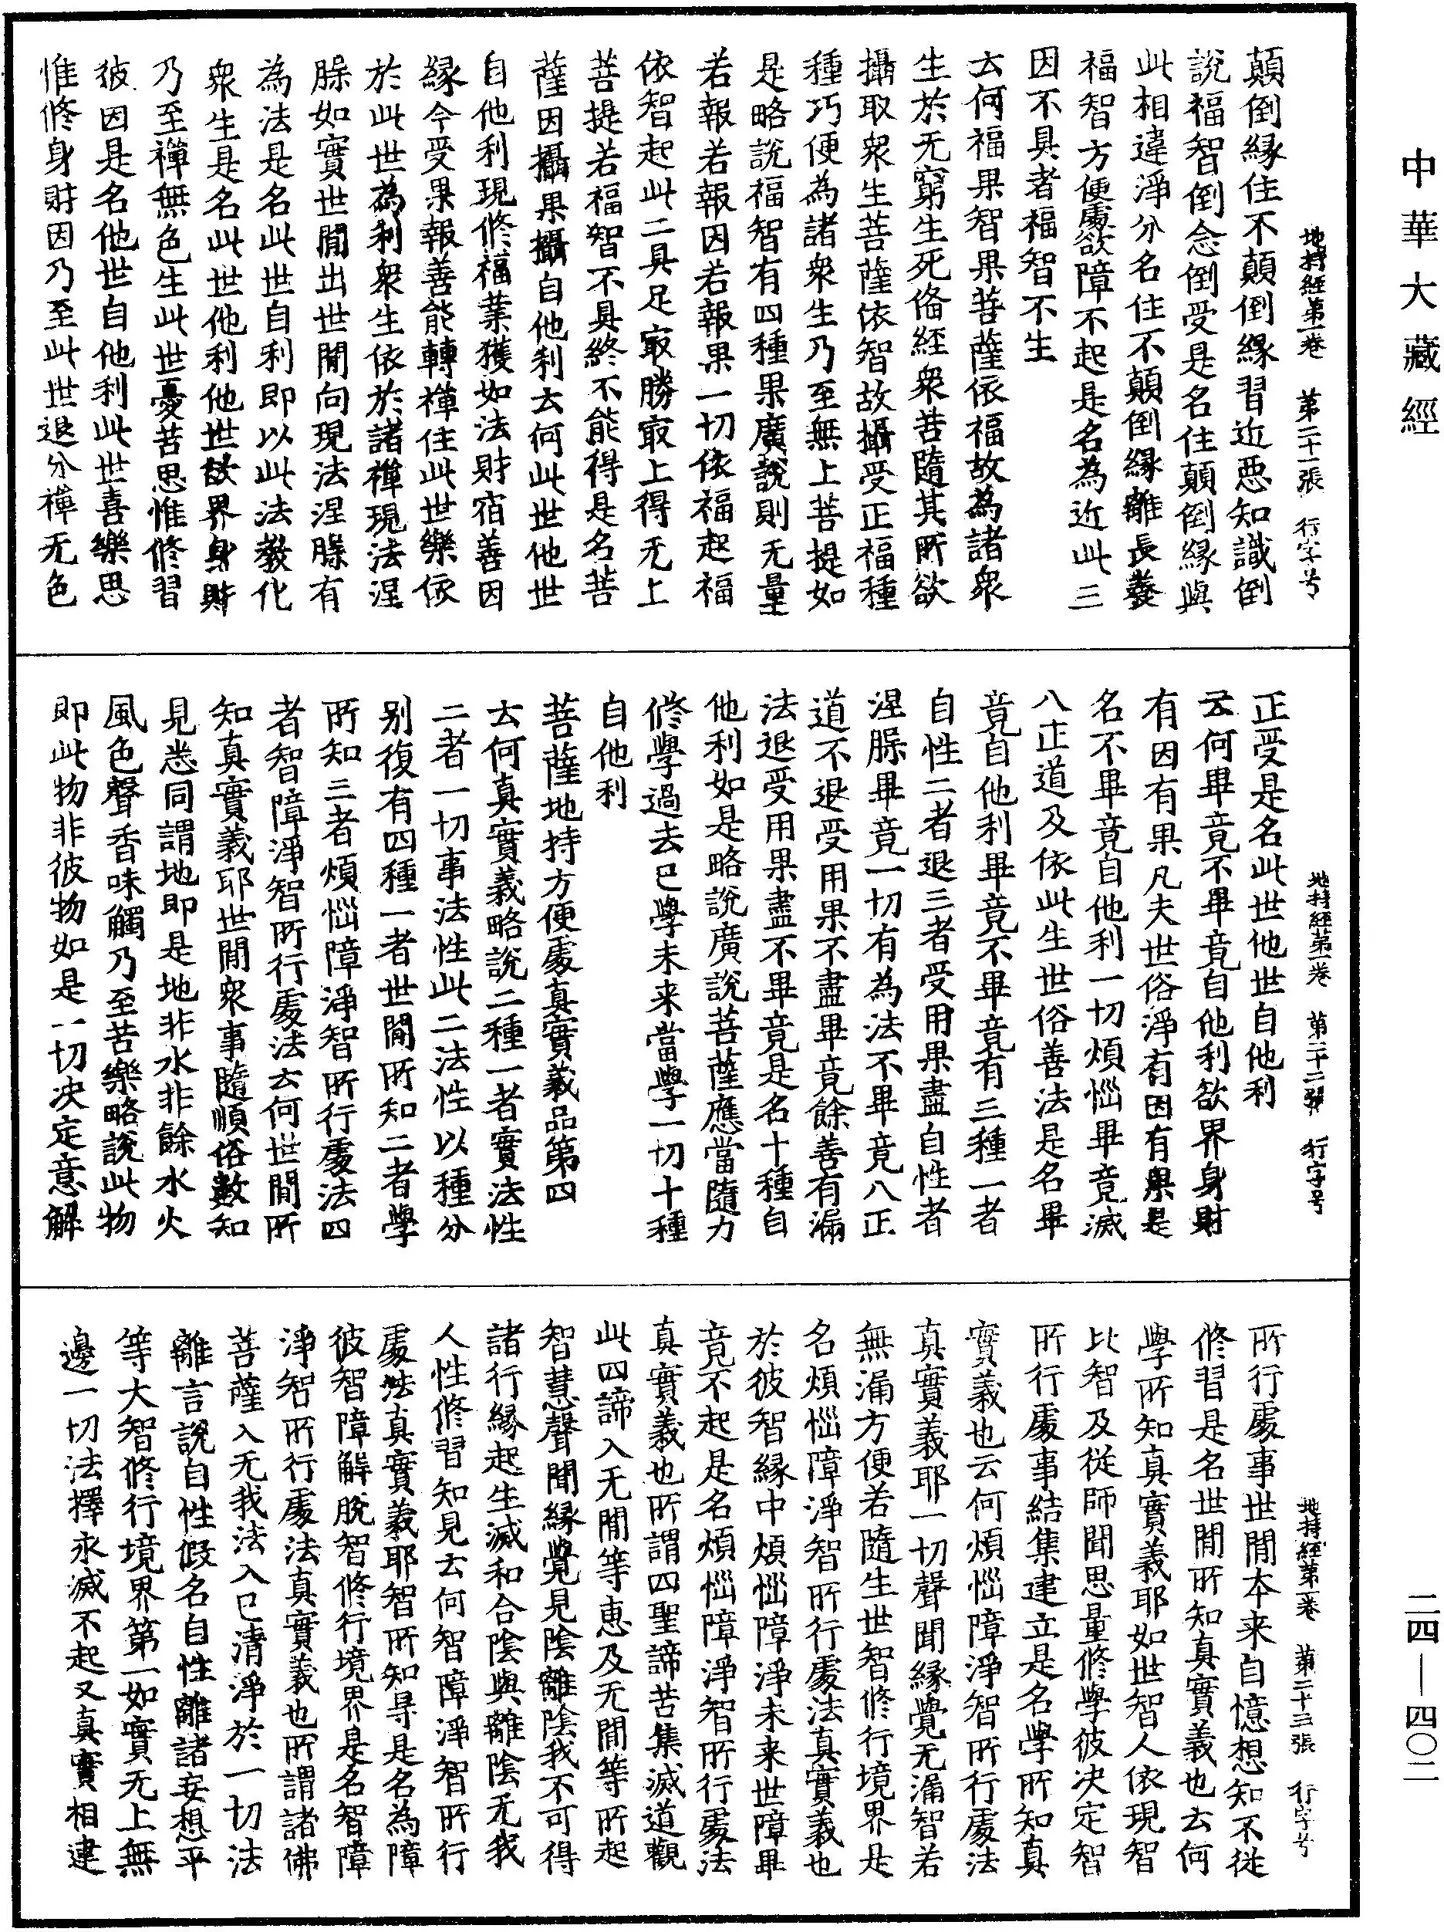 中華大藏經
地持經第一卷　第二十一張　行字号
顛倒緣住不顛倒緣習近惡知識倒
說福智倒念倒受是名住顛倒緣與
此相違淨分名住不顛倒緣離長養
福智方便處欲障不起是名為近此三
因不具者福智不生
云何福果智果菩薩依福故為諸衆
生於无窮生死俻經衆苦隨其所欲
攝取衆生菩薩依智故攝受正福種
種巧便為諸衆生乃至無上菩提如
是略說福智有四種果廣說則无量
若報若報因若報果一切依福起福
依智起此二具足㝡勝㝡上得无上
菩提若福智不具終不能得是名菩
薩因攝果攝自他利云何此世他世
自他利現修福業獲如法財宿善因
緣今受果報善能轉禪住此世樂依
於此世為利衆生依於諸禪現法涅
槃如實世閒出世閒向現法涅槃有
為法是名此世自利即以此法教化
衆生是名此世他利他世欲界身財
乃至禪無色生此世憂苦思惟修習
彼因是名他世自他利此世喜樂思
惟修身財因乃至此世退分禪无色
地持經第一卷　第二十二張　行字号
正受是名此世他世自他利
云何畢竟不畢竟自他利欲界身財
有因有果凡夫世俗淨有因有果是
名不畢竟自他利一切煩惱畢竟滅
八正道及依此生世俗善法是名畢
竟自他利畢竟不畢竟有三種一者
自性二者退三者受用果盡自性者
涅槃畢竟一切有為法不畢竟八正
道不退受用果不盡畢竟餘善有漏
法退受用果盡不畢竟是名十種自
他利如是略說廣說菩薩應當隨力
修學過去已學未来當學一切十種
自他利
菩薩地持方便處真實義品第四
云何真實義略說二種一者實法性
二者一切事法性此二法性以種分
別復有四種一者世閒所知二者學
所知三者煩惱障淨智所行處法四
者智障淨智所行處法云何世閒所
知真實義耶世閒衆事隨順俗數知
見悉同謂地即是地非水非餘水火
風色聲香味觸乃至苦樂略說此物
即此物非彼物如是一切决定意解
地持經第一卷　第二十三張　行字号
所行處事世閒本来自憶想知不從
修習是名世閒所知真實義也云何
學所知真實義耶如世智人依現智
比智及從師聞思量修學彼決定智
所行處事結集建立是名學所知真
實義也云何煩惱障淨智所行處法
真實義耶一切聲聞緣覺无漏智若
無漏方便若隨生世智修行境界是
名煩惱障淨智所行處法真實義也
於彼智緣中煩惱障淨未来世障畢
竟不起是名煩惱障淨智所行處法
真實義也所謂四聖諦苦集滅道觀
此四諦入无閒等恵及无閒等所起
智慧聲聞緣覺見陰離陰我不可得
諸行緣起生滅和合陰與離陰无我
人性修習知見云何智障淨智所行
處法真實義耶智所知㝵是名為障
彼智障解脫智修行境界是名智障
淨智所行處法真實義也所謂諸佛
菩薩入无我法入已清淨於一切法
離言說自性假名自性離諸妄想平
等大智修行境界第一如實无上無
邊一切法擇永滅不起又真實相建
二四—四〇二